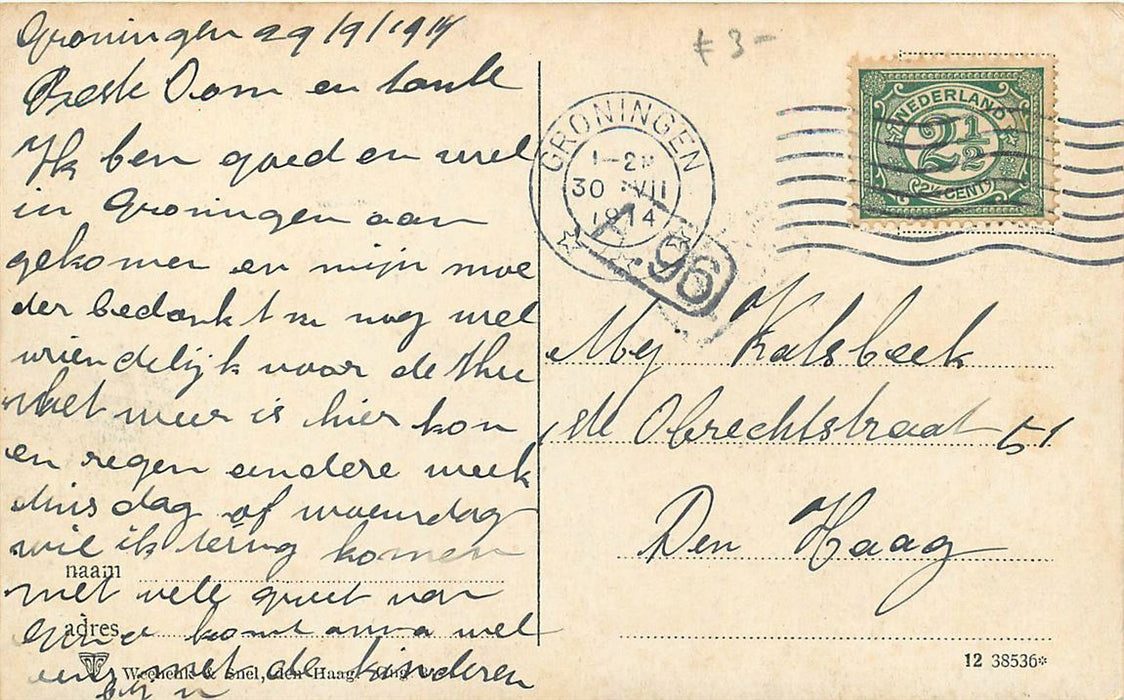 Groningen 29/9/1914
Beste Oom en tante
Ik ben goed en wel
in Groningen aan
gekomen en mijn moe
der bedankt u nog wel
vriendelijk voor de thee
het weer is hier kou
en regen andere week
dinsdag of woensdag
wil ik terug komen
naam
met vele groet van
adres
komt anna wel
met de kinderen
Weenenk & Snel, den Haag.
£ 3-
GRONINGEN
1-2N
30 VII
1914
96
NEDERLAND
2½
2½ CENT
Mej Kalsbeek
de Obrechtstraat 51
Den Haag
12 38536*